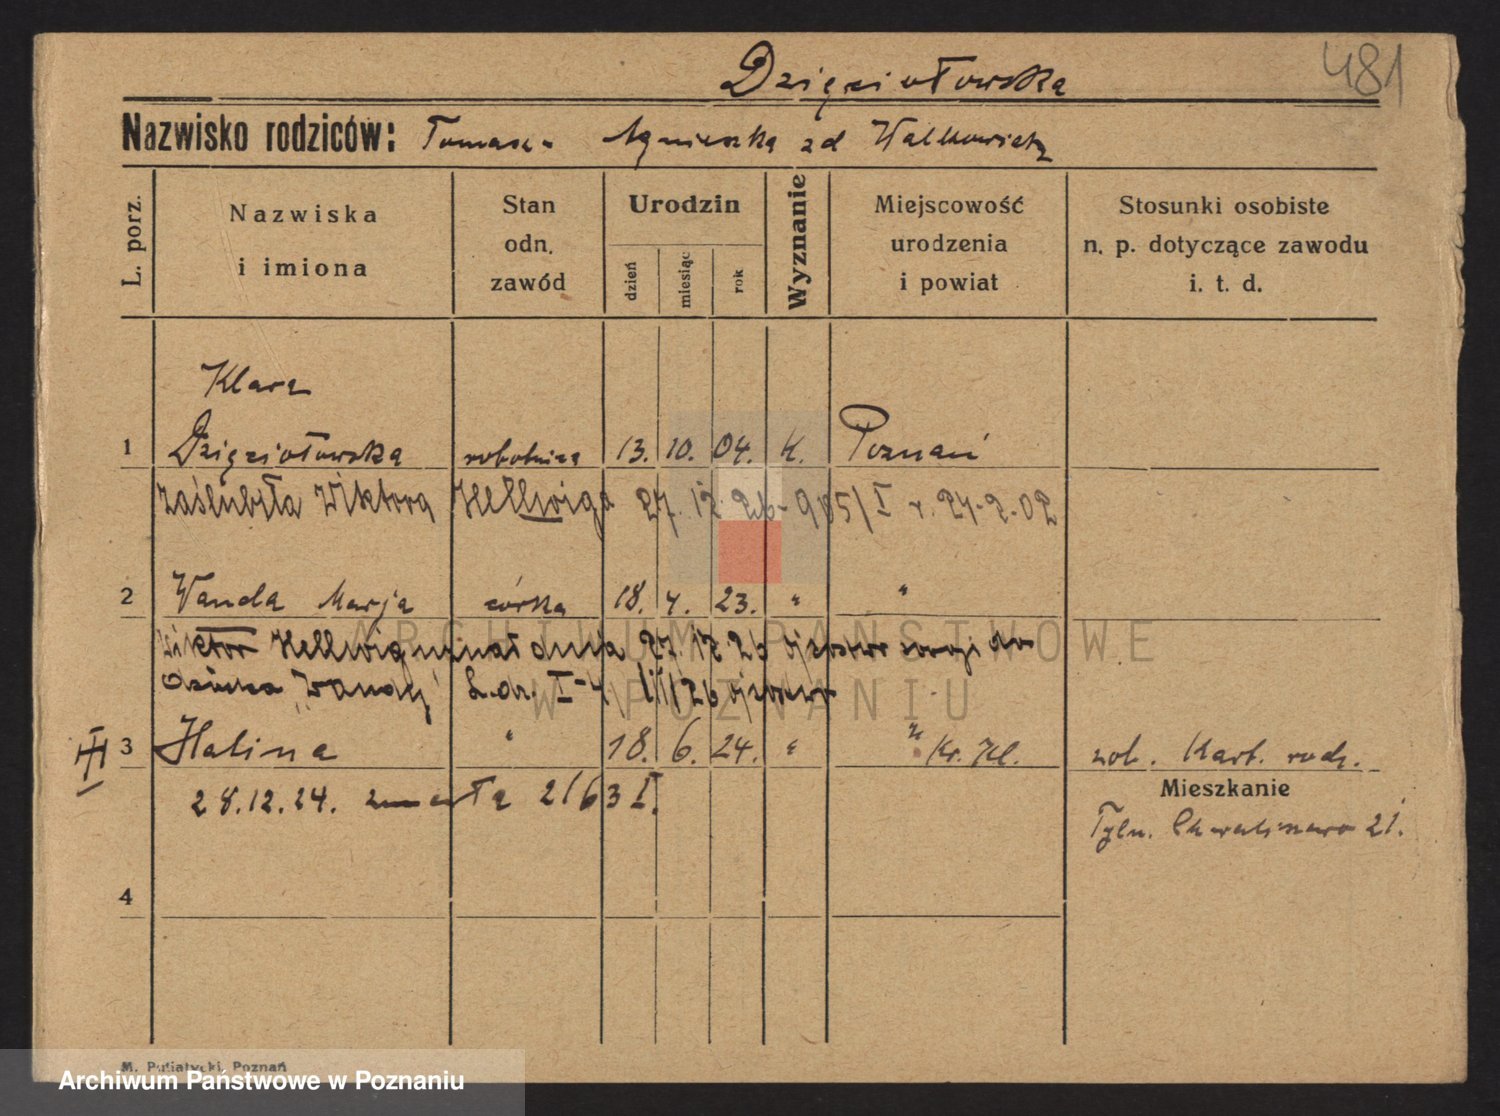 Dzięciołowska
481
Nazwisko rodziców: Tomasz - Agnieszka zd Walkowiak
L. porz.
Nazwiska
i imiona
Stan
odn.
zawód
Urodzin
dzień
miesiąc
rok
Wyznanie
Miejscowość
urodzenia
i powiat
Stosunki osobiste
n. p. dotyczące zawodu
i. t. d.
Klara
1 Dzięciołowska robotnica 13. 10. 04. K. Poznań
zaślubiła Wiktora Hellwiga 27. 12. 26 - 985/I r. 24-2-02
2 Wanda Marja córka 18. 4. 23. " "
Wiktor Hellwig uznał dnia 27. 12. 26 ojcostwo swoje do
dziecka „Wandy” L.dz. I-4
III 3 Halina " 18. 6. 24. " " Kr. Kl. zob. Kart. rodz.
28.12.24. zmarła 2163 I.
Mieszkanie
Tyln. Chwaliszewo 21.
4
M. Putiatycki, Poznań
ARCHIWUM PAŃSTWOWE
W POZNANIU
Archiwum Państwowe w Poznaniu